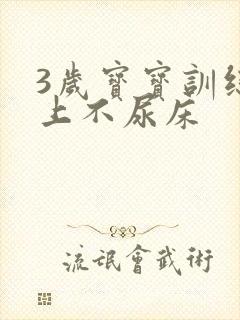 3歲寶寶訓練
上不尿床
流氓會武術